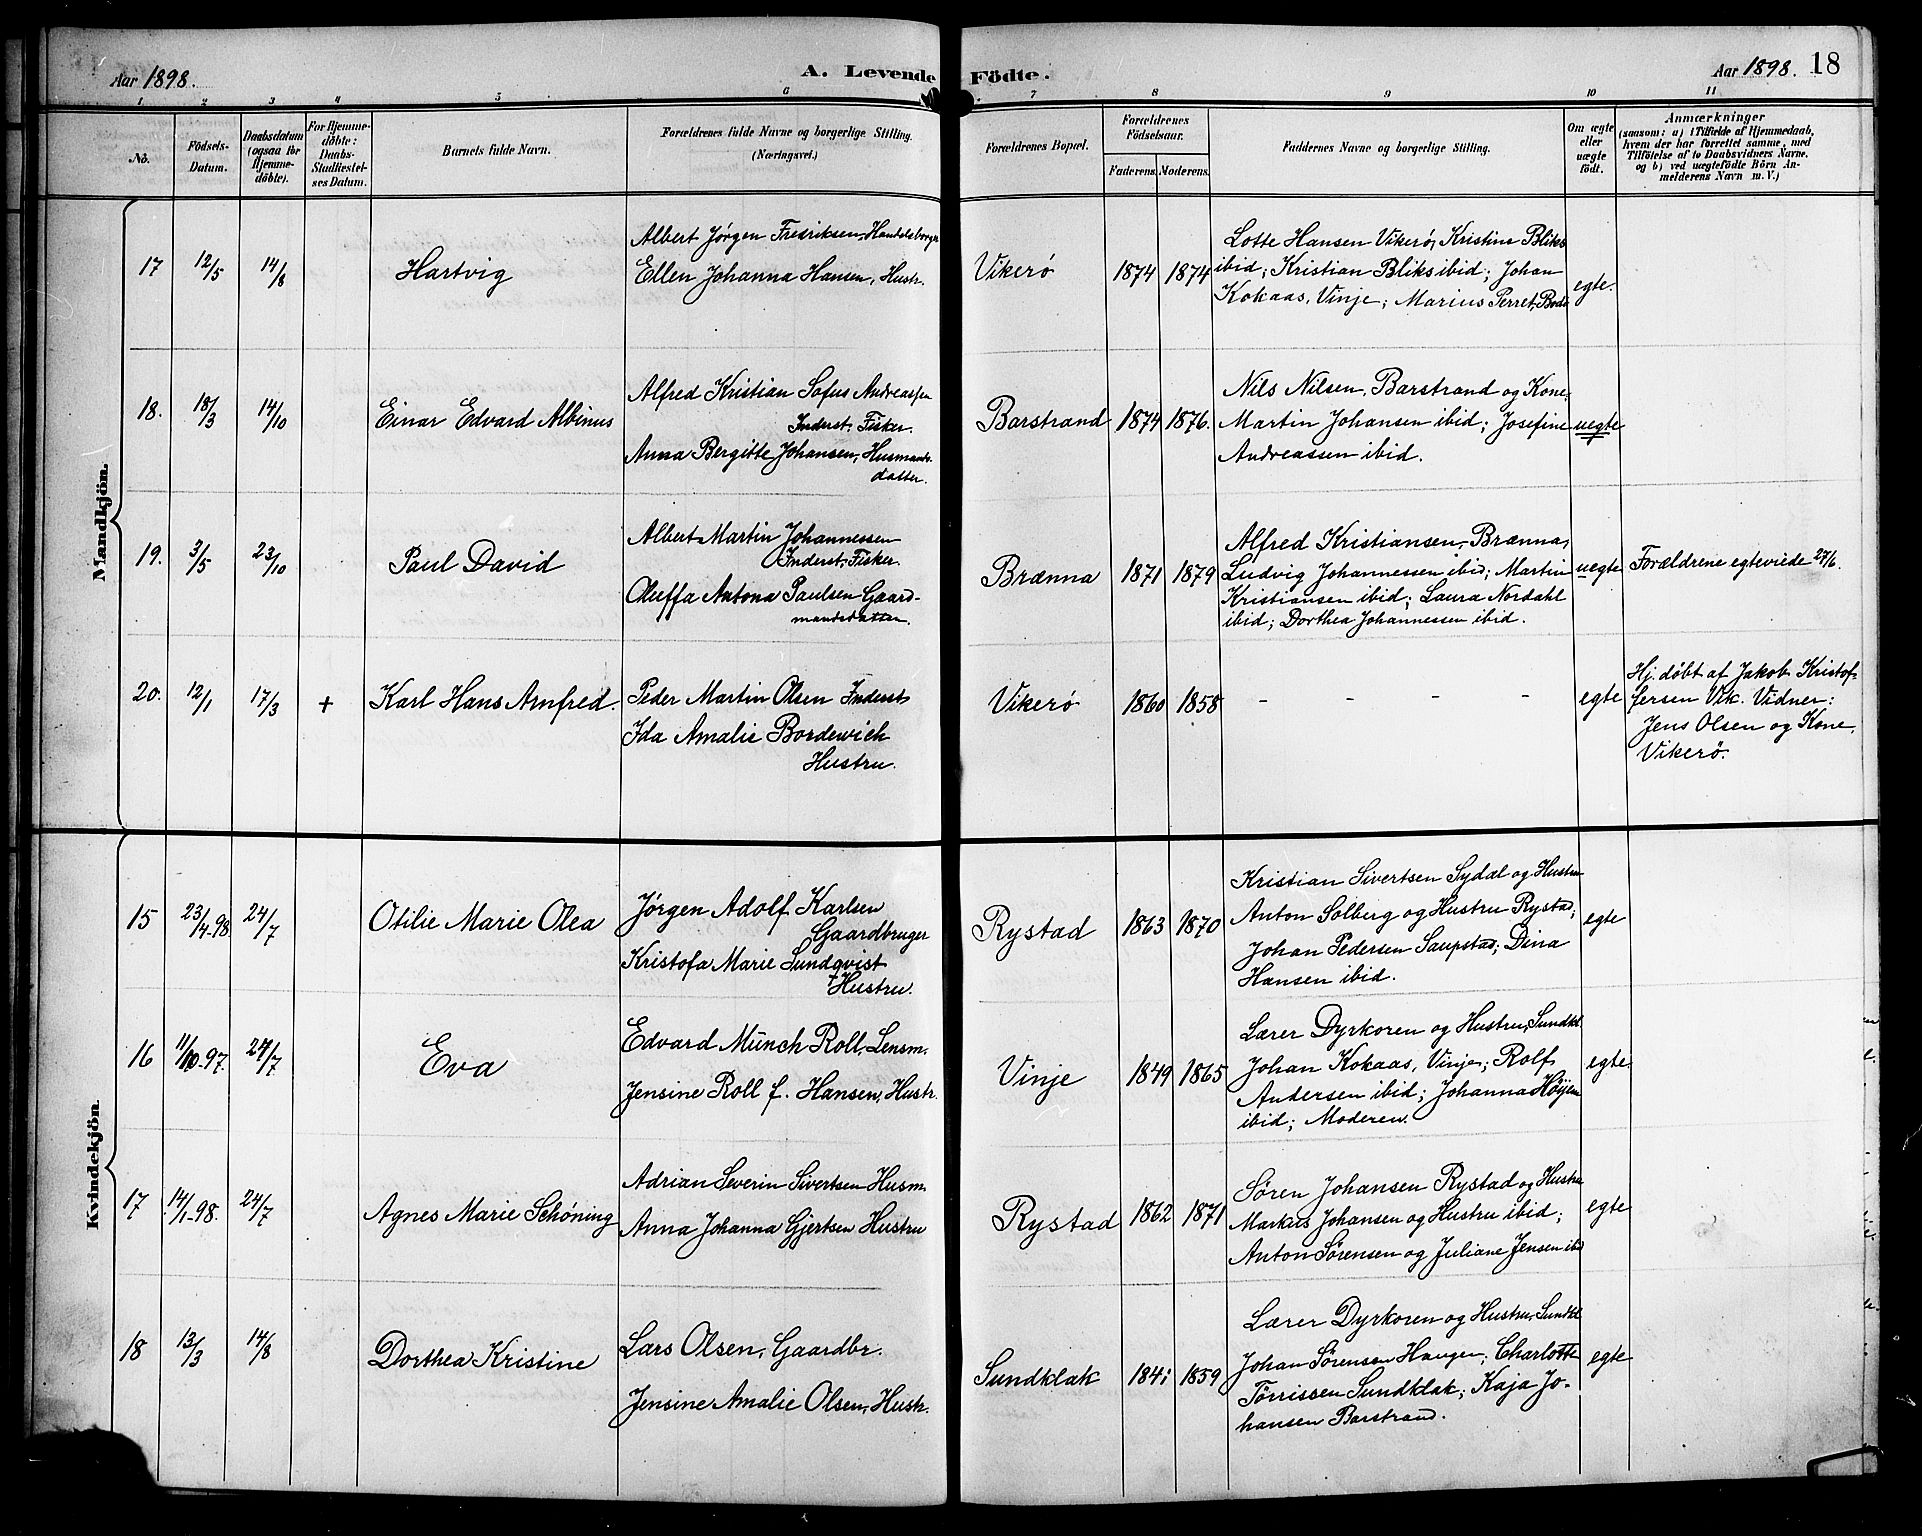 Aar 1898.
A. Levende Födte.
Aar 1898. 18
1 2 3 4 5 6 7 8 9 10 11
No.
Födsels-
Datum.
Daabsdatum
(ogsaa for
Hjemme-
döbte).
For Hjemme-
döbte:
Daabs-
Stadfæstel-
ses Datum.
Barnets fulde Navn.
Forældrenes fulde Navne og borgerlige Stilling.
(Næringsvei.)
Forældrenes Bopæl.
Forældrenes
Födselsaar.
Faderens. Moderens.
Faddernes Navne og borgerlige Stilling.
Om ægte
eller
uægte
födt.
Anmærkninger
(saasom: a) i Tilfælde af Hjemmedaab,
hvem der har forrettet samme, med
Tilföielse af to Daabsvidners Navne,
og b) ved uægtefödte Börn An-
melderens Navn m. V.)
Mandkjön.
17 12/5 14/8
Hartvig
Albert Jörgen Fredriksen, Handelsborger
Ellen Johanna Hansen, Hustr.
Vikerö
1874 1874
Lotte Hansen Vikerö, Kristine Bliks
ibid; Kristian Bliks ibid; Johan
Kokaas, Vinje; Marius Perret, Bodö
egte.
18. 18/3 14/10
Einar Edvard Albinus
Alfred Kristian Sofus Andreassen
Inderst, Fisker.
Anna Bergitte Johansen, Husmands-
datter.
Barstrand
1874 1876.
Nils Nilsen, Barstrand og Kone,
Martin Johansen ibid; Josefine
Andreassen ibid.
uegte
19. 3/5 23/10
Paul David
Albert Martin Johannessen
Inderst, Fisker.
Oluffa Antona Paulsen Gaard-
mandsdatter.
Brænna
1871 1879
Alfred Kristiansen, Brænna,
Ludvig Johannessen ibid; Martin
Kristiansen ibid; Laura Nordahl
ibid; Dorthea Johannessen ibid.
uegte
Forældrene egteviede 27/6.
20. 12/1 17/3 +
Karl Hans Arnfred.
Peder Martin Olsen Inderst
Ida Amalie Bordewich
Hustru.
Vikerö
1860 1858
- - - -
egte
Hj. döbt af Jakob Kristof-
fersen Vik. Vidner:
Jens Olsen og Kone,
Vikerö.
Kvindekjön.
15 23/4-98 24/7
Otilie Marie Olea
Jörgen Adolf Karlsen
Gaardbruger
Kristofa Marie Sundqvist
Hustru.
Rystad
1863 1870
Kristian Sivertsen Sydal og Hustru
Anton Solberg og Hustru Rystad;
Johan Pedersen Saupstad; Dina
Hansen ibid.
egte
16 11/10-97. 24/7
Eva
Edvard Münch Roll, Lensm.
Jensine Roll f. Hansen, Hustr.
Vinje
1849 1865
Lærer Dyrkoren og Hustru, Sundkl.
Johan Kokaas, Vinje; Rolf
Andersen ibid; Johanna Höyem
ibid; Moderen.
egte.
17 14/1-98. 24/7
Agnes Marie Schöning
Adrian Severin Sivertsen Husm.
Anna Johanna Gjertsen Hustru
Rystad
1862 1871
Sören Johansen Rystad og Hustru
Markus Johansen og Hustru ibid;
Anton Sörensen og Juliane Jensen ibid
egte
18 13/3 14/8
Dorthea Kristine
Lars Olsen, Gaardbr.
Jensine Amalie Olsen, Hustr.
Sundklak
1841 1859
Lærer Dyrkoren og Hustru, Sundkl.
Johan Sörensen Haugen; Charlotte
Törrissen Sundklak; Kaja Jo-
hansen Barstrand.
egte